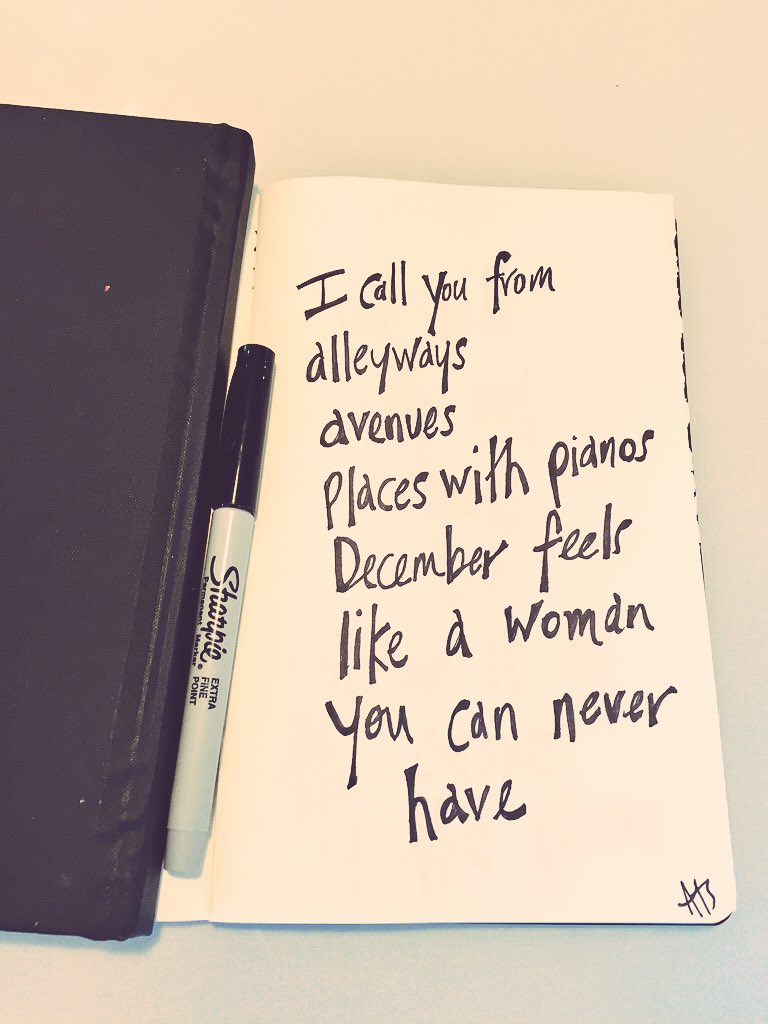 I call you from
alleyways
avenues
places with pianos
December feels
like a woman
you can never
have
ATB
Sharpie®
Permanent Marker
EXTRA
FINE
POINT